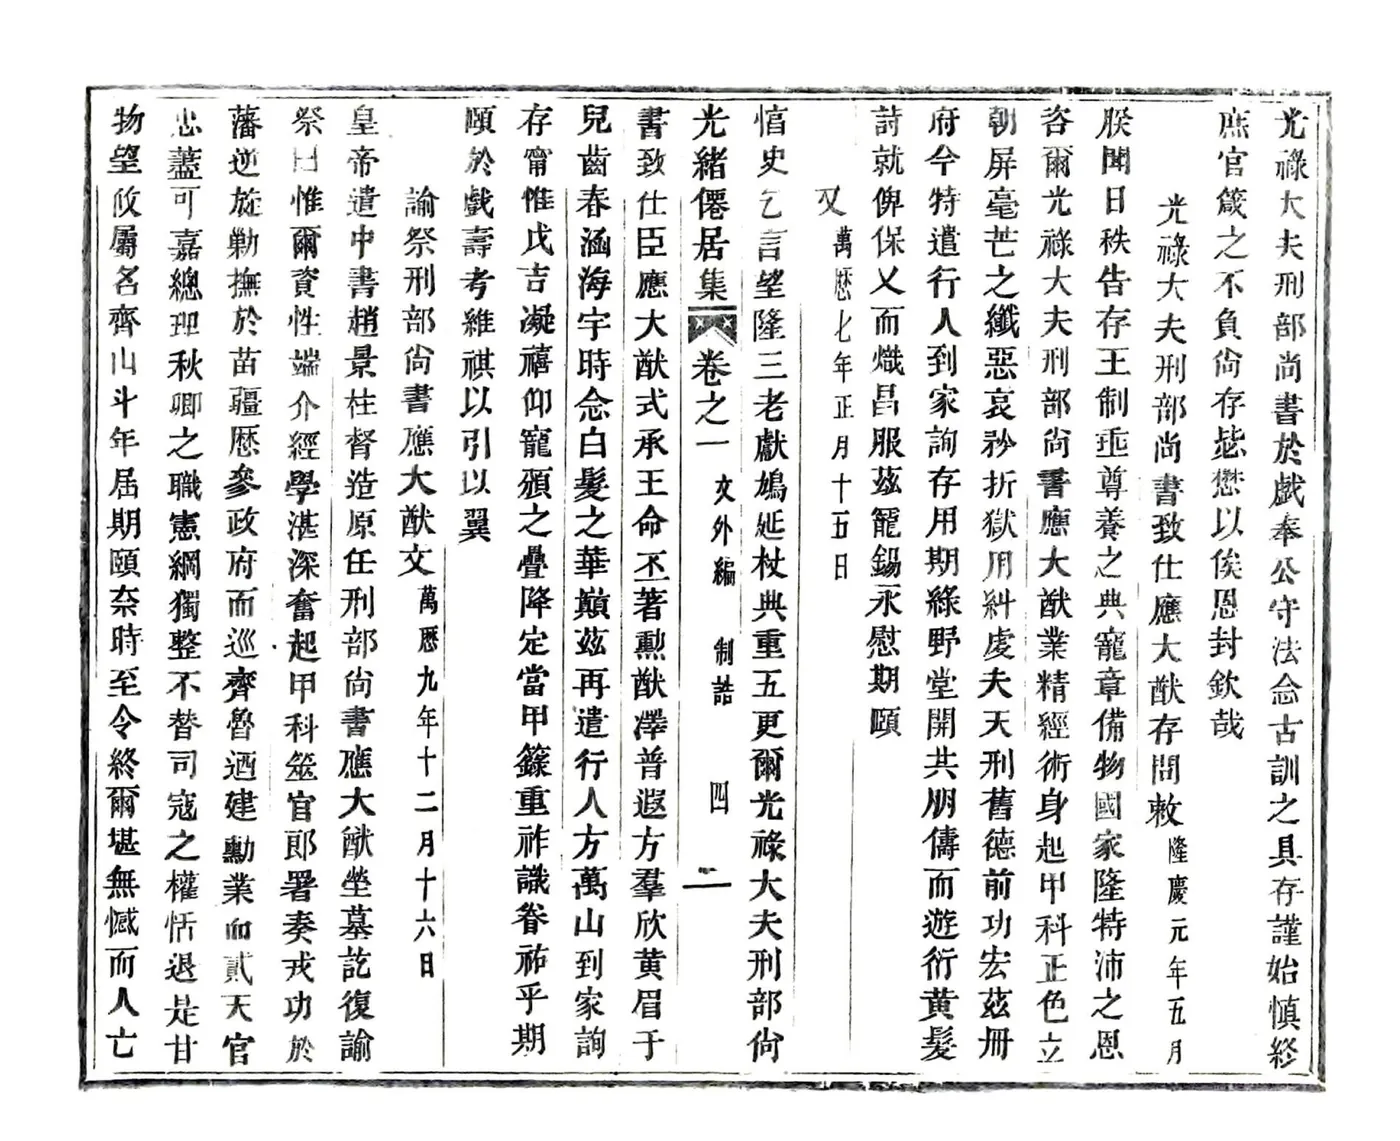 光祿大夫刑部尚書於戲奉公守法念古訓之具存謹始慎終
庶官箴之不負尚存毖懋以俟恩封欽哉
光祿大夫刑部尚書致仕應大猷存問敕 隆慶元年五月
朕聞日秩告存王制亟尊養之典寵章備物國家隆特沛之恩
咨爾光祿大夫刑部尚書應大猷業精經術身起甲科正色立
朝屏毫芒之纖惡哀矜折獄用糾虔夫天刑舊德前功宏茲冊
府今特遣行人到家詢存用期綠野堂開共朋儔而遊衍黃髮
詩就俾保乂而熾昌服茲寵錫永慰期頤
又 萬曆七年正月十五日
惇史乞言望隆三老獻鳩延杖典重五更爾光祿大夫刑部尚
光緒僊居集 卷之一 文外編 制誥 四 二
書致仕臣應大猷式承王命丕著勲猷澤普遐方羣欣黄眉于
兒齒春涵海宇時念白髮之華巔茲再遣行人方萬山到家詢
存甯惟戊吉凝禧仰寵頒之疊降定當甲籙重祚識眷祐乎期
頤於戲壽考維祺以引以翼
諭祭刑部尚書應大猷文 萬曆九年十二月十六日
皇帝遣中書趙景柱督造原任刑部尚書應大猷塋墓訖復諭
祭曰惟爾資性端介經學湛深奮起甲科筮官郎署奏戎功於
藩逆旋勦撫於苗疆歷參政府而巡齊魯迺建勳業而貳天官
忠藎可嘉總理秋卿之職憲綱獨整不替司寇之權恬退是甘
物望攸屬名齊山斗年屆期頤奈時至令終爾堪無憾而人亡